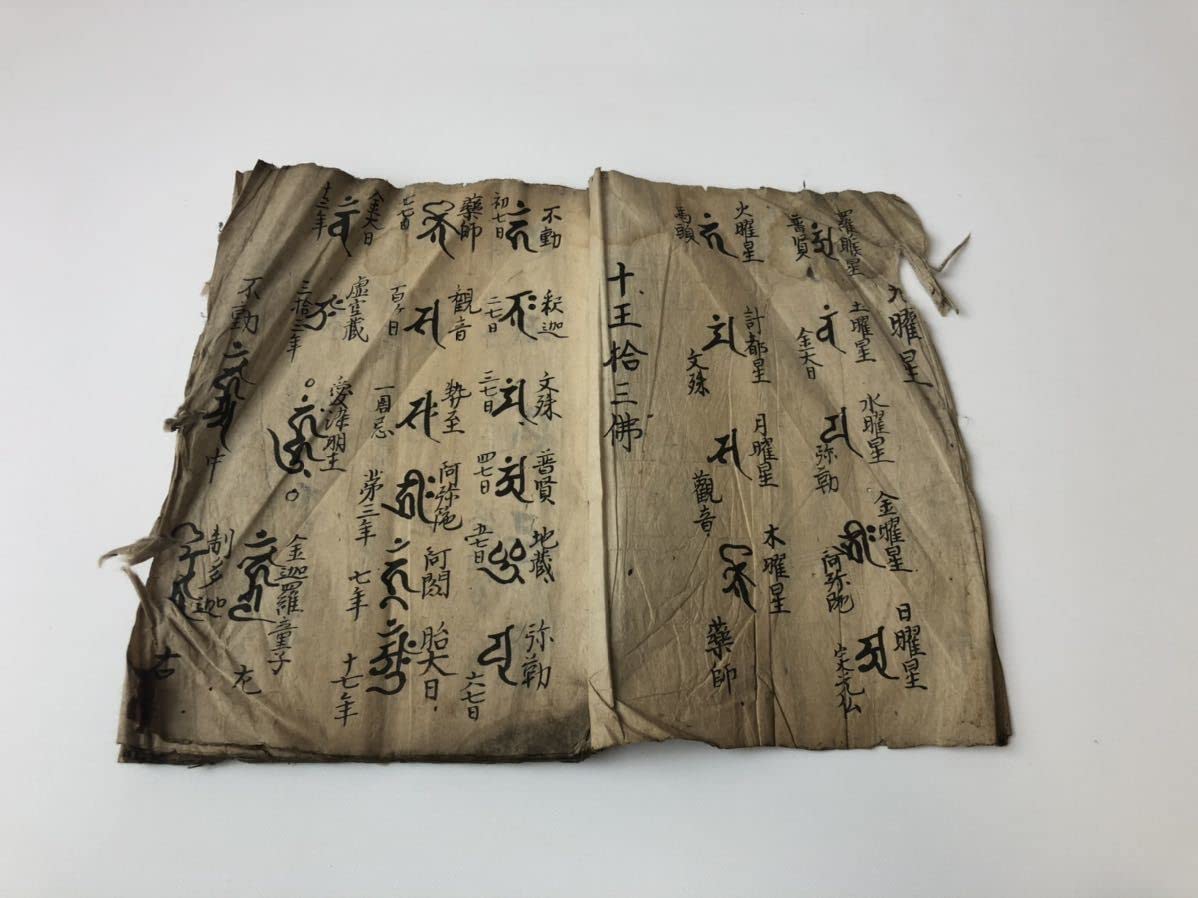 九曜星
羅睺星 土曜星 水曜星 金曜星 日曜星
普賢 金大日 弥勒 阿弥陀
火曜星 計都星 月曜星 木曜星
馬頭 文殊 觀音 藥師
十王拾三佛
不動 釈迦 文殊 普賢 地蔵 弥勒
初七日 二七日 三七日 四七日 五七日 六七日
藥師 觀音 勢至 阿弥陀 阿閦 胎大日
百ヶ日 一周忌 第三年 七年 十七年
金大日 虚空蔵 愛染明王 金迦羅童子
十三年 三拾三年 左
不動 中 制多迦 右